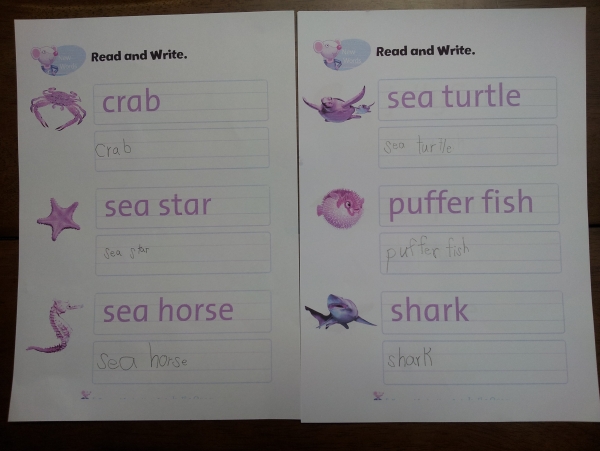 Read and Write.
crab
Crab
sea star
sea star
sea horse
sea horse
Read and Write.
sea turtle
sea turtle
puffer fish
puffer fish
shark
sharK